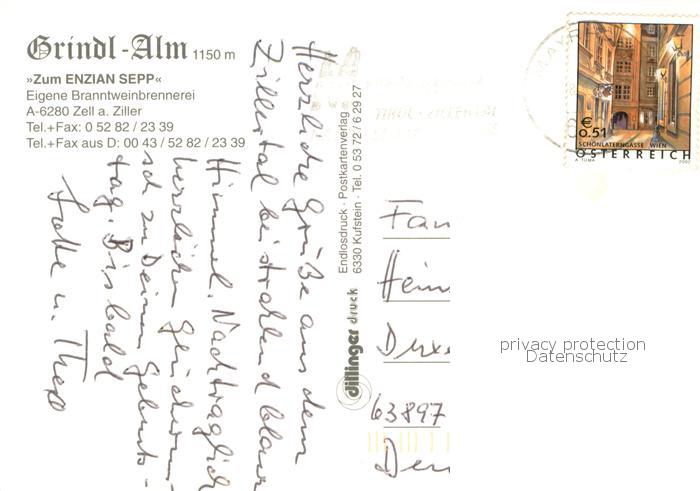 Grindl-Alm 1150 m
»Zum ENZIAN SEPP«
Eigene Branntweinbrennerei
A-6280 Zell a. Ziller
Tel.+Fax: 0 52 82 / 23 39
Tel.+Fax aus D: 00 43 / 52 82 / 23 39
Herzliche Grüße aus dem
Zillertal bei strahlend blauem
Himmel. Nachträglich
herzlichen Glückwun-
sch zu Deinem Geburts-
tag. Bis bald
u. Theo
Endlosdruck · Postkartenverlag
6330 Kufstein · Tel. 0 53 72 / 6 29 27
dillinger druck
€ 0.51
SCHÖNLATERNGASSE WIEN
ÖSTERREICH
A. TUMA 2002
Fam
Hein
63897
privacy protection
Datenschutz